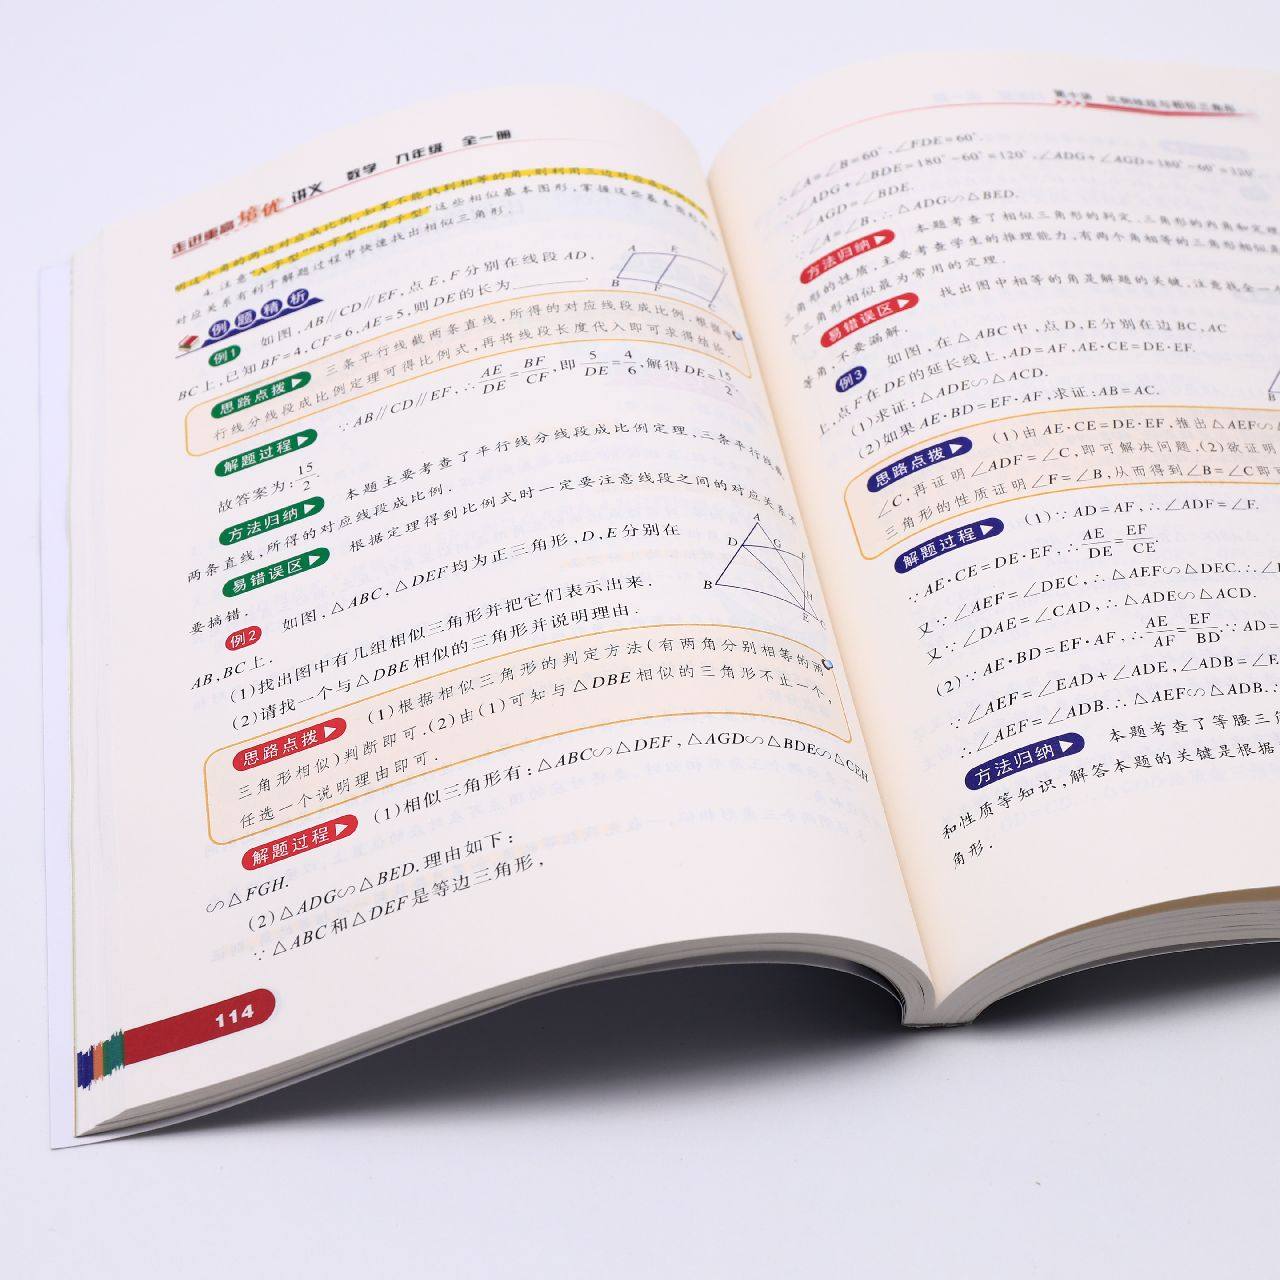 走进重高 培优 讲义 数学 九年级 全一册
明这个角的两边对应成比例,如果不能找到相等的角,则利用三边对应成比例
4.注意“A字型”“8字型”“母子型”这些相似基本图形,掌握这些基本图形
对应关系有利于解题过程中快速找出相似三角形.
例题精析
例1 如图,AB∥CD∥EF,点E,F分别在线段AD,
BC上,已知BF=4,CF=6,AE=5,则DE的长为________.
A E
B F
思路点拨 三条平行线截两条直线,所得的对应线段成比例,根据平
行线分线段成比例定理可得比例式,再将线段长度代入即可求得结论.
解题过程 ∵AB∥CD∥EF,∴AE/DE=BF/CF,即5/DE=4/6,解得DE=15/2.
故答案为:15/2.
方法归纳 本题主要考查了平行线分线段成比例定理,三条平行线截
两条直线,所得的对应线段成比例.
易错误区 根据定理得到比例式时一定要注意线段之间的对应关系不
要搞错.
例2 如图,△ABC,△DEF均为正三角形,D,E分别在
AB,BC上.
(1)找出图中有几组相似三角形并把它们表示出来.
(2)请找一个与△DBE相似的三角形并说明理由.
A
D G F
H
B E C
思路点拨 (1)根据相似三角形的判定方法(有两角分别相等的两
三角形相似)判断即可.(2)由(1)可知与△DBE相似的三角形不止一个,
任选一个说明理由即可.
解题过程 (1)相似三角形有:△ABC∽△DEF,△AGD∽△BDE∽△CEH
∽△FGH.
(2)△ADG∽△BED.理由如下:
∵△ABC和△DEF是等边三角形,
114
第十讲 比例线段与相似三角形
∴∠A=∠B=60°,∠FDE=60°.
∴∠ADG+∠BDE=180°-60°=120°,∠ADG+∠AGD=180°-60°=120°
∴∠AGD=∠BDE.
∵∠A=∠B,∴△ADG∽△BED.
方法归纳 本题考查了相似三角形的判定、三角形的内角和定理
角形的性质,主要考查学生的推理能力,有两个角相等的三角形相似是
个三角形相似最为常用的定理.
易错误区 找出图中相等的角是解题的关键,注意找全一
等角,不要漏解.
例3 如图,在△ABC中,点D,E分别在边BC,AC
上,点F在DE的延长线上,AD=AF,AE·CE=DE·EF.
(1)求证:△ADE∽△ACD.
(2)如果AE·BD=EF·AF,求证:AB=AC.
B
思路点拨 (1)由AE·CE=DE·EF,推出△AEF∽
∠C,再证明∠ADF=∠C,即可解决问题.(2)欲证明
三角形的性质证明∠F=∠B,从而得到∠B=∠C即可
解题过程 (1)∵AD=AF,∴∠ADF=∠F.
∵AE·CE=DE·EF,∴AE/DE=EF/CE.
又∵∠AEF=∠DEC,∴△AEF∽△DEC.∴∠
又∵∠DAE=∠CAD,∴△ADE∽△ACD.
(2)∵AE·BD=EF·AF,∴AE/AF=EF/BD.∵AD=
∵∠AEF=∠EAD+∠ADE,∠ADB=∠
∴∠AEF=∠ADB.∴△AEF∽△ADB.∴
方法归纳 本题考查了等腰三
和性质等知识,解答本题的关键是根据
角形.